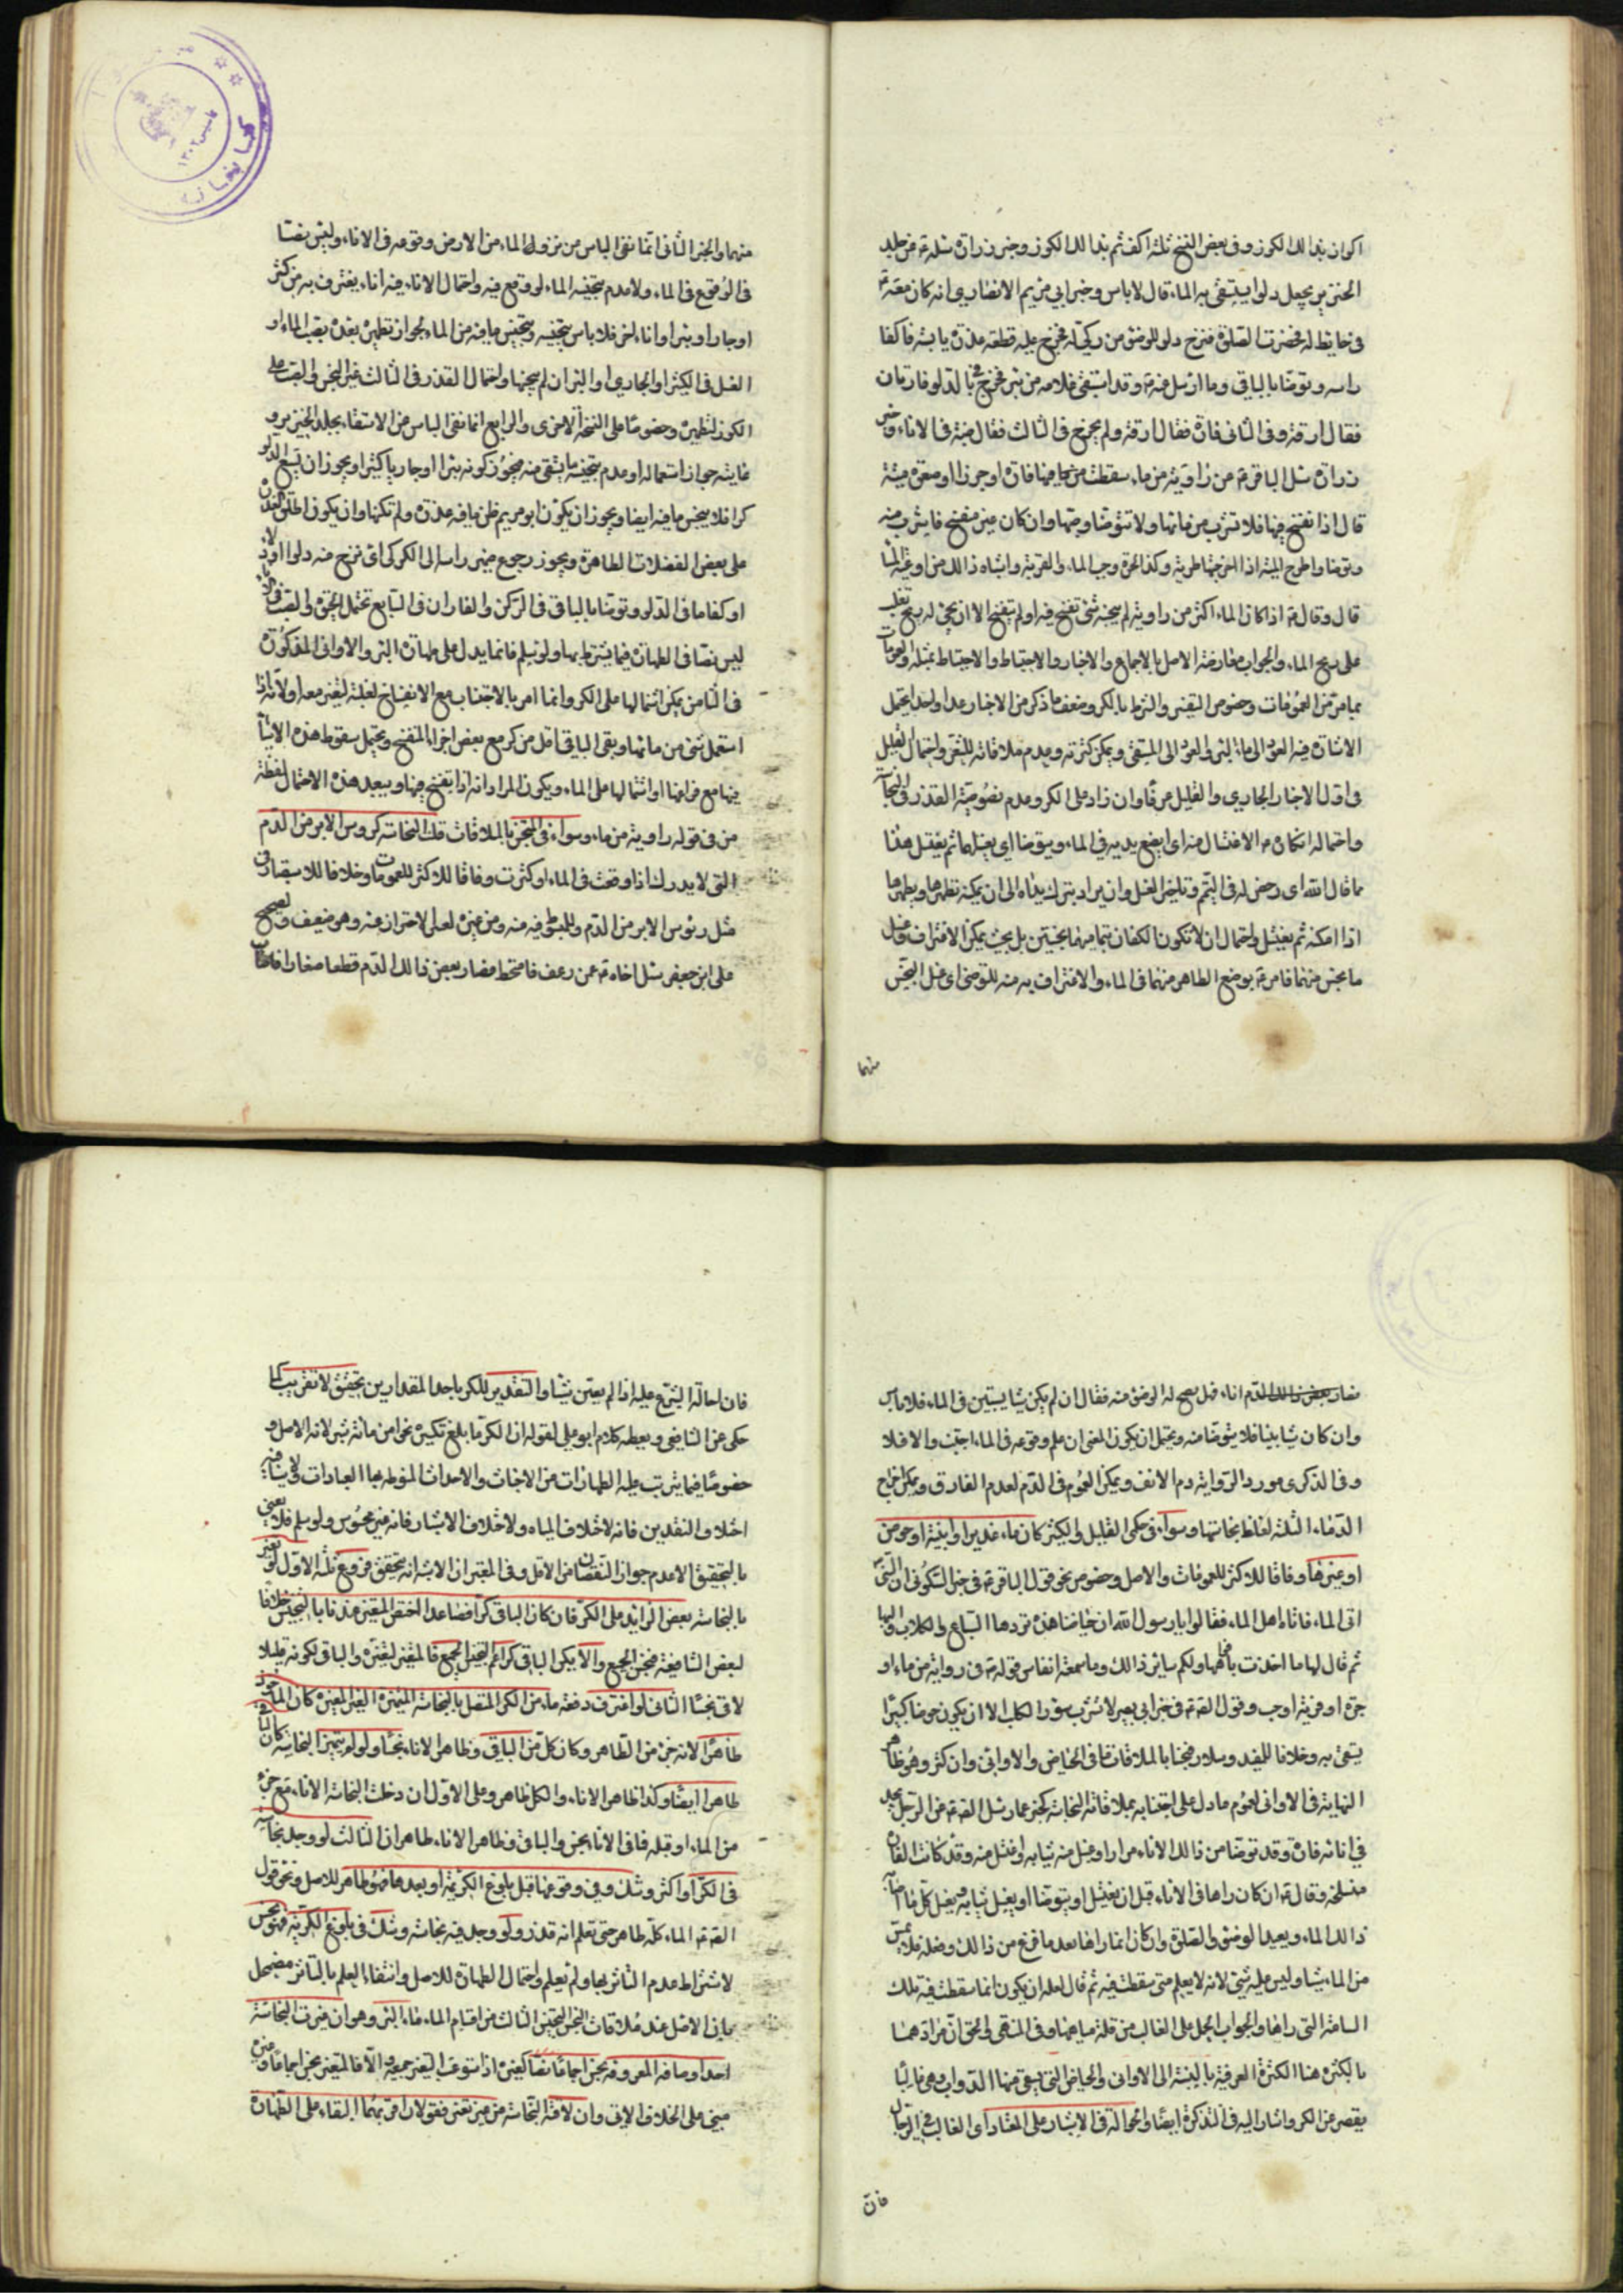 اكوان بذالك الكوز وفى بعض النسخ ثلثة اكف ثم بذالك الكوز وخبر زرارة سئله ع عن جلد
الخنزير يجعل دلوا يستقى به الماء قال لاباس وخبر ابي مريم الانصاري انه كان معه ع
فى حايط له فحضرت الصلوة فنزح دلوا للوضوء من ركي له فخرج عليه قطعة عذرة يابسة فاكفا
راسه وتوضا بالباقي وما ارسل عنه ع وقد استقى غلامه من بئر فخرج في الدلو فارتان
فقال ارقه وفى الثانى فارة فقال ارقه ولم يخرج فى الثالث فقال صبه فى الاناء وخبر
زرارة سئل الباقر ع عن راوية من ماء سقطت فيها فارة او جرذ او صعوة ميتة
قال اذا تفسخ فيها فلا تشرب من مائها ولا تتوضا وصبها وان كان غير متفسخ فاشرب منه
وتوضا واطرح الميتة اذا اخرجتها طرية وكذا الجرة وحب الماء والقربة واشباه ذالك من اوعية الماء
قال وقال ع اذا كان الماء اكثر من راوية لم ينجسه شئ تفسخ فيه او لم يتفسخ الا ان يجئ له ريح تغلب
على ريح الماء والجواب معارضة الاصل بالاجماع والاخبار والاحتياط والاحتياط بمثله والعمومات
بما مر من العمومات وخصوص التغير والشرط بالكر وضعف ما ذكر من الاخبار عدا واحد يحتمل
الاشارة فيه العود الى ماء البئر والعود الى المستقى ويمكن كثرته وعدم ملاقاته للشعر واحتمال القليل
فى اول الاخبار الجاري والقليل عرفا وان زاد على الكر وعدم نصوصية القذر فى النجاسة
واحتماله انكاره ع الاغتسال منه اى ايضع يديه في الماء ويتوضا اى يغسلهما ثم يغتسل هذا
مما قال الله اى رخص له فى التيمم وتاخير الغسل وان يراد يترك يداه الى ان يمكنه تطهيرهما ويطهرهما
اذا امكنه ثم يغتسل واحتمال ان لا تكون الكفان بتمامهما نجستين بل بحيث يمكن الاغتراف وغسل
ما نجس منهما فامر ع بوضع الطاهر منهما فى الماء والاغتراف به منه للتوضئ اى غسل النجس
منهما
منهما والخبر الثانى انما نفى الباس من نزول الماء من الارض وقوعه فى الاناء وليس نصا
فى الوقوع فى الماء ولا عدم تنجيسه الماء لو وقع فيه واحتمال الاناء فيه اناء يغترف به من كثير
او جار او بئر او اناء اخر فلا باس بتنجيسه وتنجيس ما فيه من الماء لجواز تطهيره بعده بصب الماء او
الغسل فى الكثير او الجاري او البئر ان لم ينجسها واحتمال القذر فى الثالث غير النجس والصب على
الكوز لتطهيره وخصوصا على النسخة الاخرى والرابع انما نفى الباس عن الاستقاء بجلد الخنزير و
غايته جواز استعماله او عدم تنجيسه ما يستقى منه فيجوز كونه بئرا او جاريا كثيرا ويجوز ان يسع الدلو
كرا فلا ينجس ما فيه ايضا ويجوز ان يكون ابو مريم ظن ما فيه عذرة ولم تكنها وان يكون اطلق العذرة
على بعض الفضلات الطاهرة ويجوز رجوع ضمير راسه الى الكركى اى نزح منه دلوا
او كفا ما فى الدلو وتوضا بالباقى فى الركن والفارتان فى السابع تحتمل الحيوة والصب
ليس نصا فى الطهارة فيما يشترط بها ولو سلم فانما يدل على طهارة البئر والاوانى المذكورة
فى الثامن يمكن اشتمالها على الكر وانما امر بالاجتناب مع الانفساخ لغلبة التغير معه او لانه اذا
استعمل شئ من مائها وبقى الباقى اقل من كر مع بعض اجزاء المتفسخ ويحتمل سقوط هذه الاشياء
فيها مع فراغها او اشتمالها على الماء ويكون المراد انه اذا تفسخ فيها ويبعد هذه الاحتمال لفظة
من فى قوله راوية من ماء وسواء فى النجس بالملاقات قلة النجاسة كروس الابر من الدم
التى لا يدرك اذا وقعت فى الماء او كثرت وفاقا للاكثر للعمومات وخلافا للاستبصار فى
مثل رئوس الابر من الدم وللمبسوط فيه منه ومن غيره لعدم الاحتراز عنه وهو ضعيف وصحيح
على ابن جعفر سئل اخاه ع عمن رعف فامتخط فصار بعض ذالك الدم قطعا صغارا فاصاب
فصار بعض ذالك الدم اناءه هل يصح له الوضوء منه فقال ان لم يكن شيئا يستبين فى الماء فلا باس
وان كان شيئا بينا فلا يتوضا منه ويحتمل ان يكون المعنى ان علم وقوعه فى الماء اجتنب والا فلا
وفى الذكرى مورد الرواية دم الانف ويمكن العموم فى الدم لعدم الفارق ويمكن اخراج
الدماء الثلثة لغلظ نجاستها وسواء فى حكمى القليل والكثير كان ماء غدير او انية او حوض
او غيرها وفاقا للاكثر للعمومات والاصل وخصوص نحو قول الباقر ع فى خبر السكونى ان النبى ص
اتى الماء فاتاه اهل الماء فقالوا يا رسول الله ان حياضنا هذه تردها السباع والكلاب والبهائم
ثم قال لها ما اخذت بافواهها ولكم ساير ذالك وما سمعته انفا من قوله ع فى رواية من ماء او
جرة او قربة او حب وقول الصادق ع فى خبر ابى بصير لا تشرب سؤر الكلب الا ان يكون حوضا كبيرا
يستقى به وخلافا للمفيد وسلار فنجسا بالملاقات ما فى الحياض والاوانى وان كثر وهو ظاهر
النهاية فى الاوانى لعموم ما دل على اجتنابه بملاقاته النجاسة كخبر عمار سئل الصادق ع عن الرجل يجد
في انائه فارة وقد توضا من ذالك الاناء مرارا وغسل منه ثيابه واغتسل منه وقد كانت الفارة
منسلخة وقال ع ان كان راها فى الاناء قبل ان يغتسل او يتوضا او يغسل ثيابه فيغسل كل ما اصابه
ذالك الماء ويعيد الوضوء والصلوة وان كان انما راها بعد ما فرغ من ذالك وفعله فلا يمس
من الماء شيئا وليس عليه شئ لانه لا يعلم متى سقطت فيه ثم قال لعله ان يكون انما سقطت فيه تلك
الساعة التى راها والجواب الحمل على الغالب من قلة مياهها وفى المنتهى والحق ان مرادهما
بالكثرة هنا الكثرة العرفية بالنسبة الى الاوانى والحياض التى يسقى منها الدواب وهى غالبا
يقصر عن الكر واشار اليه فى التذكرة ايضا والحوالة فى الاشبار على المعتاد اى الغالب فى الرجال
فان
فان احالة الشرع عليه اذا لم يعين شيئا والتقدير للكر باحد المقدارين تحقيق لا تقريب كما
حكى عن الشافعى ويعطيه كلام ابو على لقوله ان الكر ما بلغ تكسيره نحوا من مائة شبر لانه الاصل و
خصوصا فيما يترتب عليه الطهارات من الاخباث والاحداث المنوطه بها العبادات ولا ينافيه
اختلاف التقديرين فانه لاختلاف المياه ولاختلاف الاشبار فانه غير محسوس ولو سلم فلا يعنى
بالتحقيق الا عدم جواز النقصان من الاقل وفى المعتبر ان الاشبه انه تحقيق فروع ثلثة الاول لو تغير
بالنجاسة بعض الزائد على الكر فان كان الباقى كرا فصاعدا اختص المتغير عندنا بالتنجيس خلافا
لبعض الشافعية فنجس الجميع والا يكن الباقى كرا عم التنجس الجميع فالمتغير لتغيره والباقى لكونه قليلا
لاقى نجسا الثانى لو اغترف دفعة ماء من الكر المتصل بالنجاسة المتميزة الغير المغيرة كان الماخوذ
طاهرا لانه جزء من الطاهر وكان كل من الباقى وظاهر الاناء نجسا ولو لم يتميز النجاسة كان الباقى
طاهرا ايضا وكذا ظاهر الاناء والكل ظاهر وعلى الاول ان دخلت النجاسة الاناء مع جزء
من الماء او قبله فما فى الاناء نجس والباقى وظاهر الاناء طاهران الثالث لو وجد نجاسة
فى الكر او اكثر وشك فى وقوعها قبل بلوغ الكرية او بعدها فهو طاهر للاصل ونحو قول
الصادق ع الماء كله طاهر حتى تعلم انه قذر ولو وجد فيه نجاسة وشك فى بلوغ الكرية فهو نجس
لاشتراط عدم التاثر بها ولم تعلم واحتمال الطهارة للاصل وانتفاء العلم بالتاثر مضمحل
بان الاصل عند ملاقات النجس التنجس الثالث من اقسام الماء ماء البئر وهو ان غيرت النجاسة
احد اوصافه المعروفة نجس اجماعا نصا كغيره اذا استوعب التغير جميعه والا فالمتغير نجس اجماعا وغيره
مبنى على الخلاف الاتى وان لاقته النجاسة من غير تغير فقولان اقربهما البقاء على الطهارة